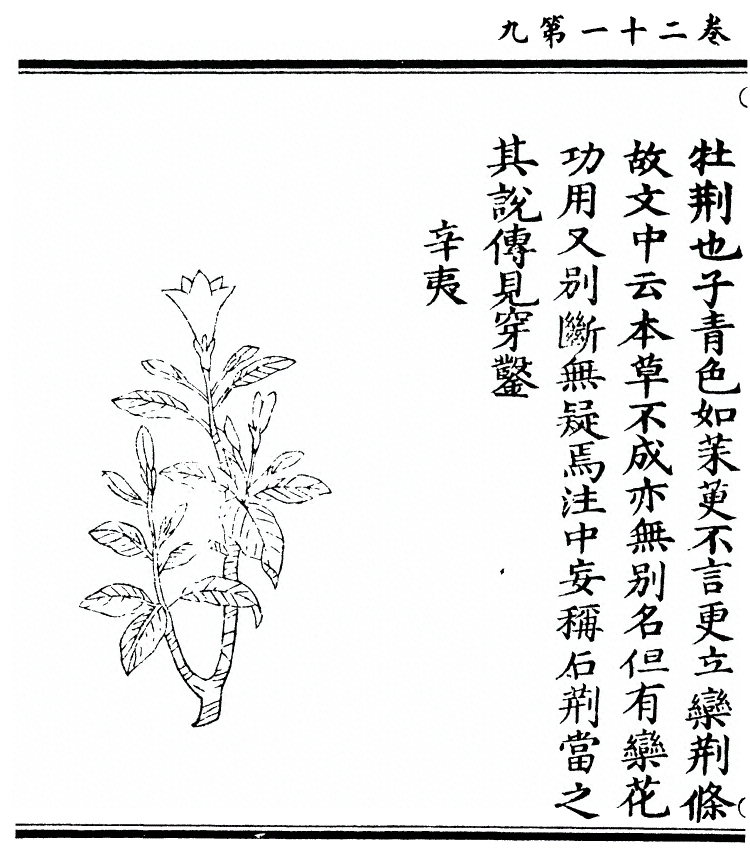 卷二十一第九
牡荆也子青色如茱萸不言更立欒荆條
故文中云本草不成亦無别名但有欒花
功用又别斷無疑焉注中妄稱石荆當之
其說傳見穿鑿
辛夷